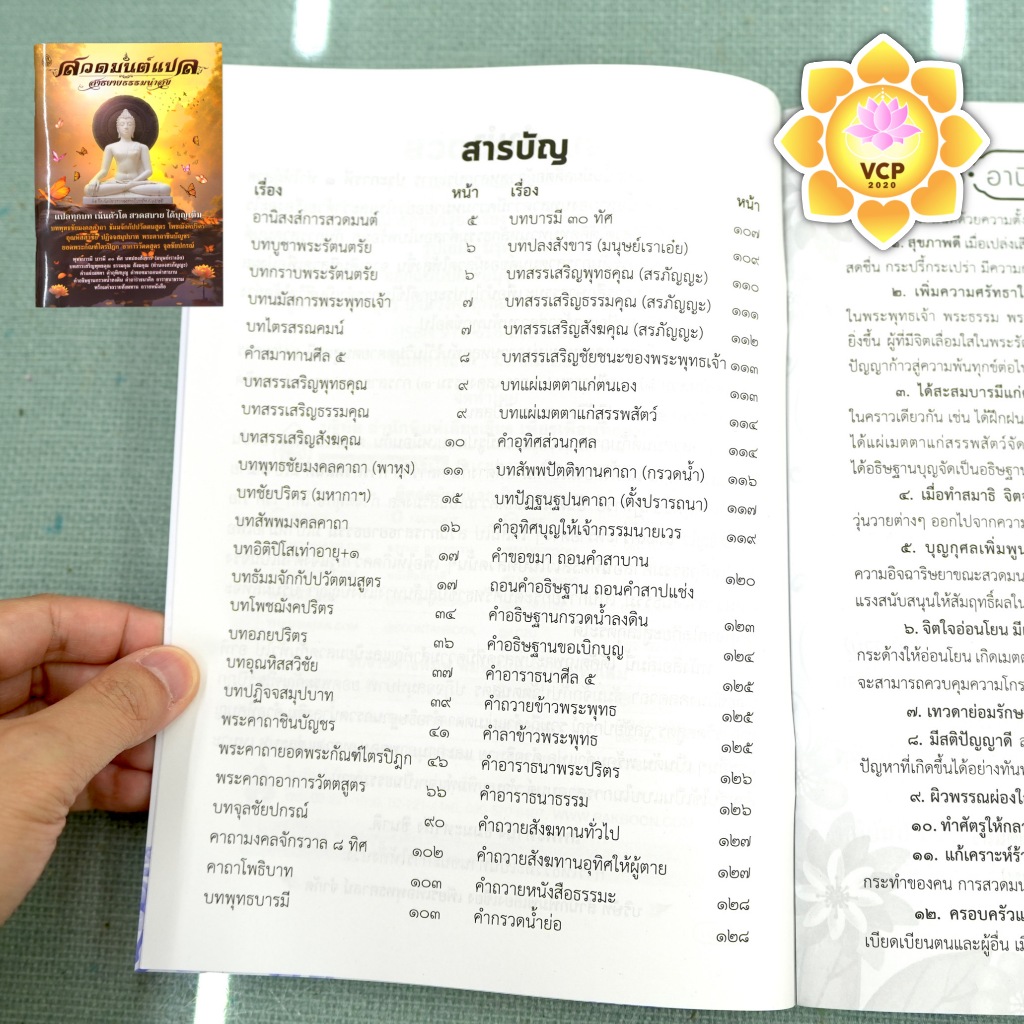 สวดมนต์แปล
แปลทุกบท เน้นตัวโต สวดสบาย ได้บุญเต็ม
VCP
2020
สารบัญ
เรื่อง หน้า
อานิสงส์การสวดมนต์ ๕
บทบูชาพระรัตนตรัย ๖
บทกราบพระรัตนตรัย ๖
บทนมัสการพระพุทธเจ้า ๗
บทไตรสรณคมน์ ๗
คำสมาทานศีล ๕ ๘
บทสรรเสริญพุทธคุณ ๙
บทสรรเสริญธรรมคุณ ๙
บทสรรเสริญสังฆคุณ ๑๐
บทพุทธชัยมงคลคาถา (พาหุง) ๑๑
บทชัยปริตร (มหากาฯ) ๑๕
บทสัพพมงคลคาถา ๑๖
บทอิติปิโสเท่าอายุ+๑ ๑๗
บทธัมมจักกัปปวัตตนสูตร ๑๗
บทโพชฌังคปริตร ๓๔
บทอภยปริตร ๓๖
บทอุณหิสสวิชัย ๓๗
บทปฏิจจสมุปบาท ๓๙
พระคาถาชินบัญชร ๔๑
พระคาถายอดพระกัณฑ์ไตรปิฎก ๔๖
พระคาถาอาการวัตตสูตร ๖๖
บทจุลชัยปกรณ์ ๙๐
คาถามงคลจักรวาล ๘ ทิศ ๑๐๒
คาถาโพธิบาท ๑๐๓
บทพุทธบารมี ๑๐๓
เรื่อง หน้า
บทบารมี ๓๐ ทัศ ๑๐๗
บทปลงสังขาร (มนุษย์เราเอ๋ย) ๑๐๙
บทสรรเสริญพุทธคุณ (สรภัญญะ) ๑๑๐
บทสรรเสริญธรรมคุณ (สรภัญญะ) ๑๑๑
บทสรรเสริญสังฆคุณ (สรภัญญะ) ๑๑๒
บทสรรเสริญชัยชนะของพระพุทธเจ้า ๑๑๓
บทแผ่เมตตาแก่ตนเอง ๑๑๓
บทแผ่เมตตาแก่สรรพสัตว์ ๑๑๔
คำอุทิศส่วนกุศล ๑๑๔
บทสัพพปัตติทานคาถา (กรวดน้ำ) ๑๑๖
บทปัฏฐนฐปนคาถา (ตั้งปรารถนา) ๑๑๗
คำอุทิศบุญให้เจ้ากรรมนายเวร ๑๑๙
คำขอขมา ถอนคำสาบาน
ถอนคำอธิษฐาน ถอนคำสาปแช่ง ๑๒๐
คำอธิษฐานกรวดน้ำลงดิน ๑๒๓
คำอธิษฐานขอเบิกบุญ ๑๒๔
คำอาราธนาศีล ๕ ๑๒๕
คำถวายข้าวพระพุทธ ๑๒๕
คำลาข้าวพระพุทธ ๑๒๕
คำอาราธนาพระปริตร ๑๒๖
คำอาราธนาธรรม ๑๒๖
คำถวายสังฆทานทั่วไป ๑๒๗
คำถวายสังฆทานอุทิศให้ผู้ตาย ๑๒๗
คำถวายหนังสือธรรมะ ๑๒๘
คำกรวดน้ำย่อ ๑๒๘
อานิ
ด้วยความตั้ง
. สุขภาพดี เมื่อเปล่งเสี
สดชื่น กระปรี้กระเปร่า มีความ
๒. เพิ่มความศรัทธาใ
ในพระพุทธเจ้า พระธรรม พร
ยิ่งขึ้น ผู้ที่มีจิตเลื่อมใสในพระรั
ปัญญาก้าวสู่ความพ้นทุกข์ต่อไป
๓. ได้สะสมบารมีแก่
ในคราวเดียวกัน เช่น ได้ฝึกฝน
ได้แผ่เมตตาแก่สรรพสัตว์จัด
ได้อธิษฐานบุญจัดเป็นอธิษฐาน
๔. เมื่อทำสมาธิ จิต
วุ่นวายต่างๆ ออกไปจากความ
๕. บุญกุศลเพิ่มพูน
ความอิจฉาริษยาขณะสวดมน
แรงสนับสนุนให้สัมฤทธิ์ผลใน
๖. จิตใจอ่อนโยน มี
กระด้างให้อ่อนโยน เกิดเมต
จะสามารถควบคุมความโกร
๗. เทวดาย่อมรักษ
๘. มีสติปัญญาดี ส
ปัญหาที่เกิดขึ้นได้อย่างทันท
๙. ผิวพรรณผ่องใ
๑๐. ทำศัตรูให้กลา
๑๑. แก้เคราะห์ร้า
กระทำของคน การสวดมน
๑๒. ครอบครัวแ
เบียดเบียนตนและผู้อื่น เมื